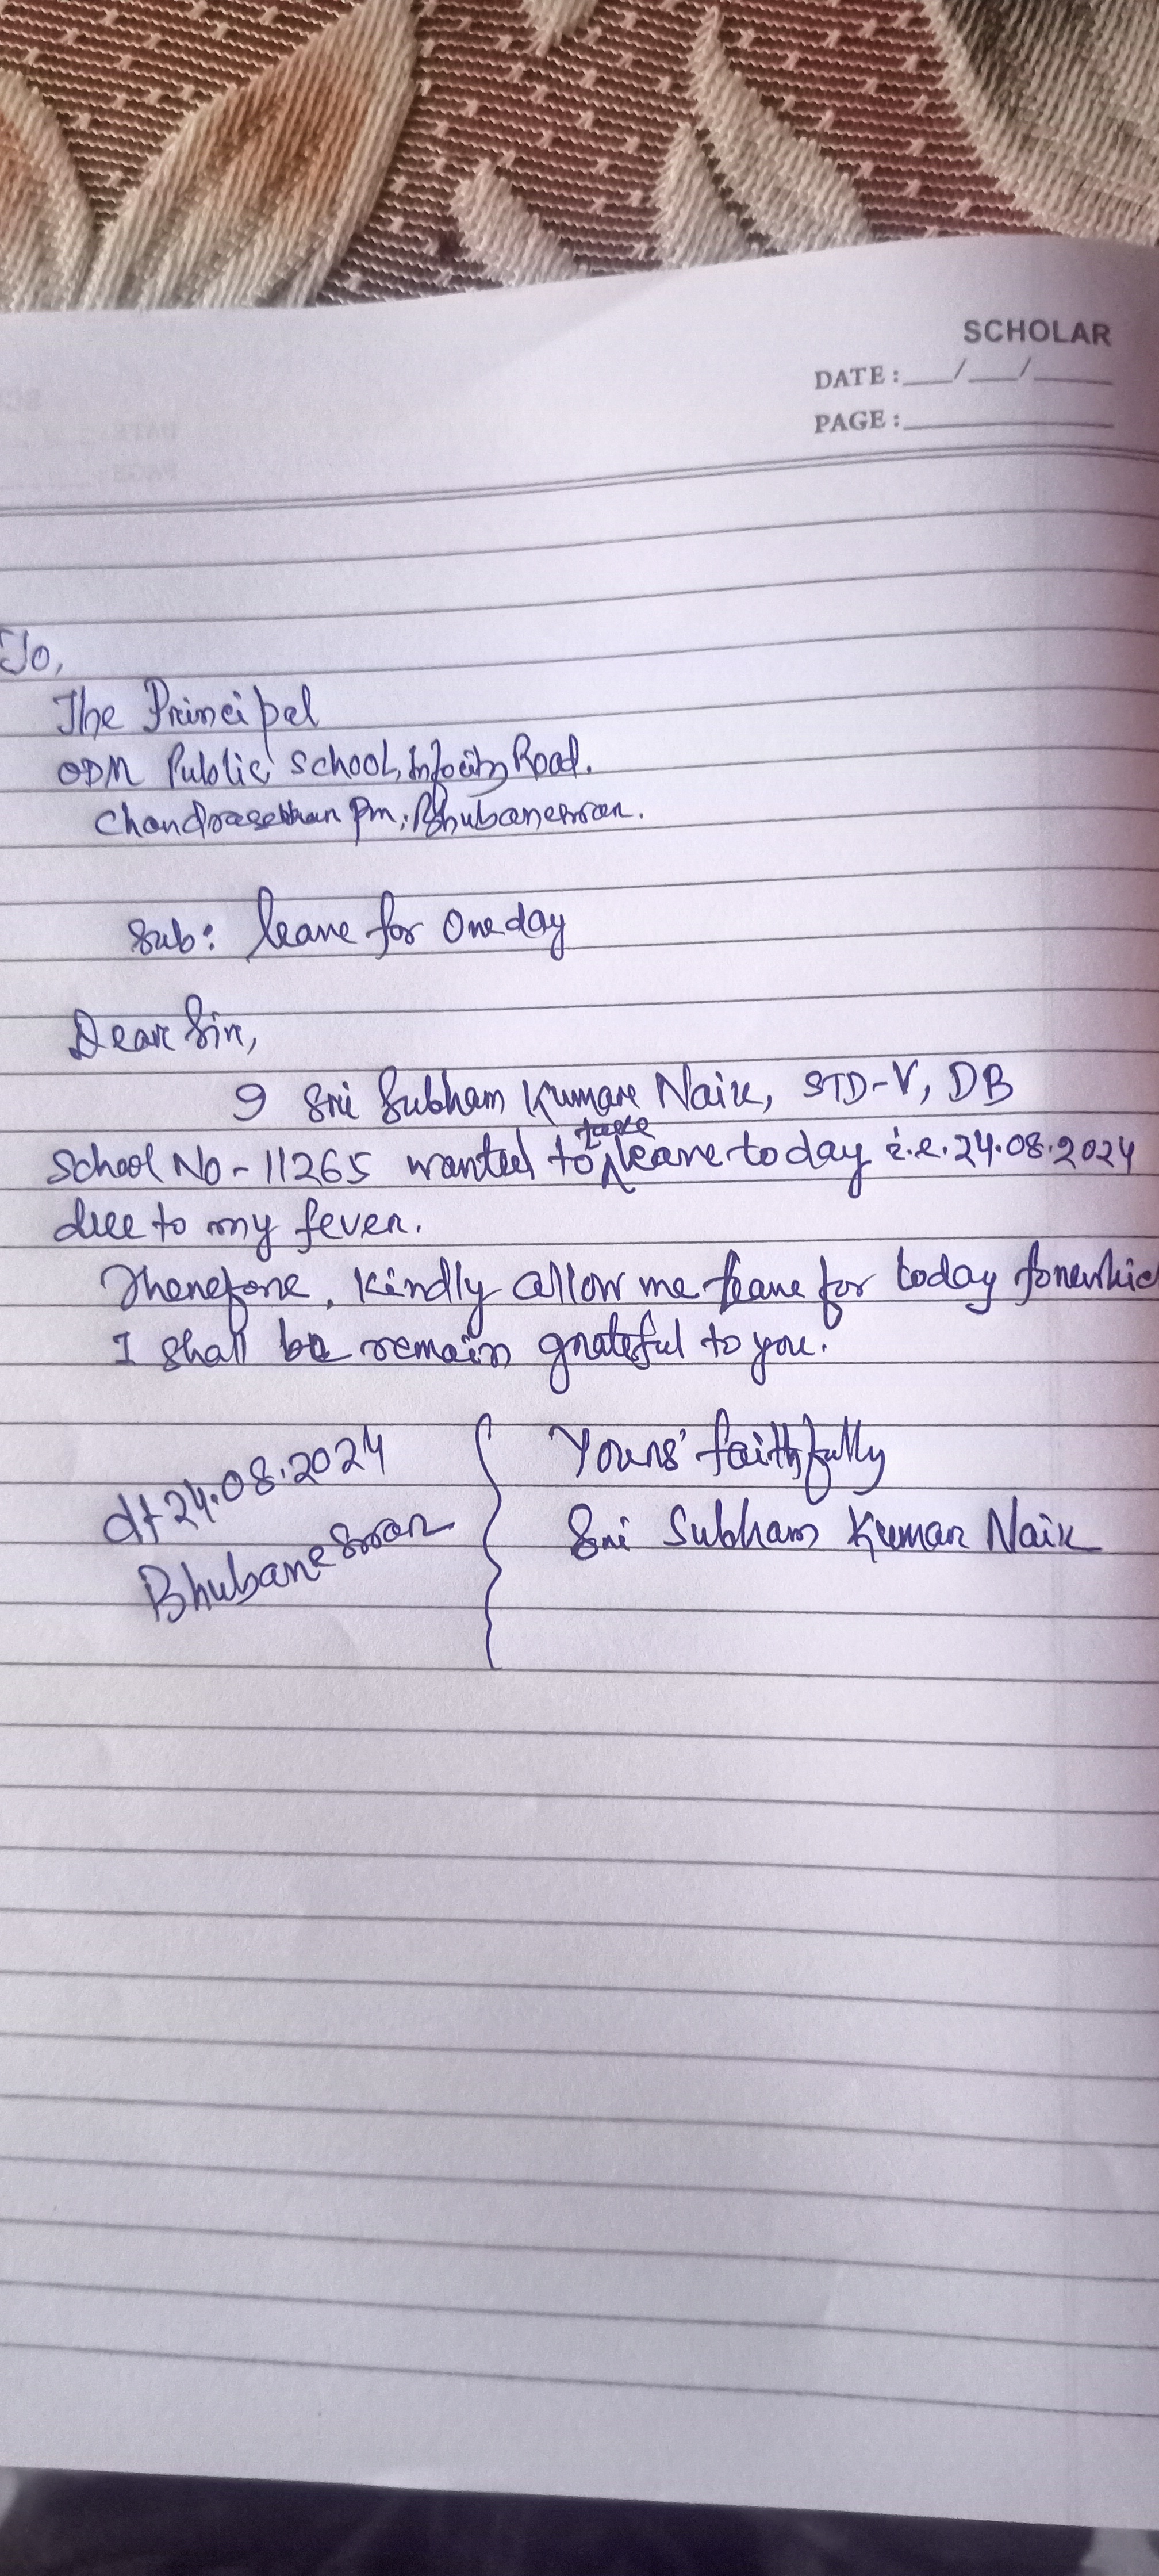 SCHOLAR
DATE : __/__/____
PAGE : ________
To,
The Principal
ODM Public School, Infocity Road.
Chandrasekhar Pm, Bhubaneswar.
Sub: leave for One day
Dear Sir,
I Sri Subham Kumar Naik, STD-V, DB
take
School No - 11265 wanted to leave today i.e. 24.08.2024
due to my fever.
Therefore, Kindly allow me leave for today forwhic
I shall be remain grateful to you.
dt 24.08.2024
Bhubaneswar
Yours' faithfully
Sri Subham Kumar Naik